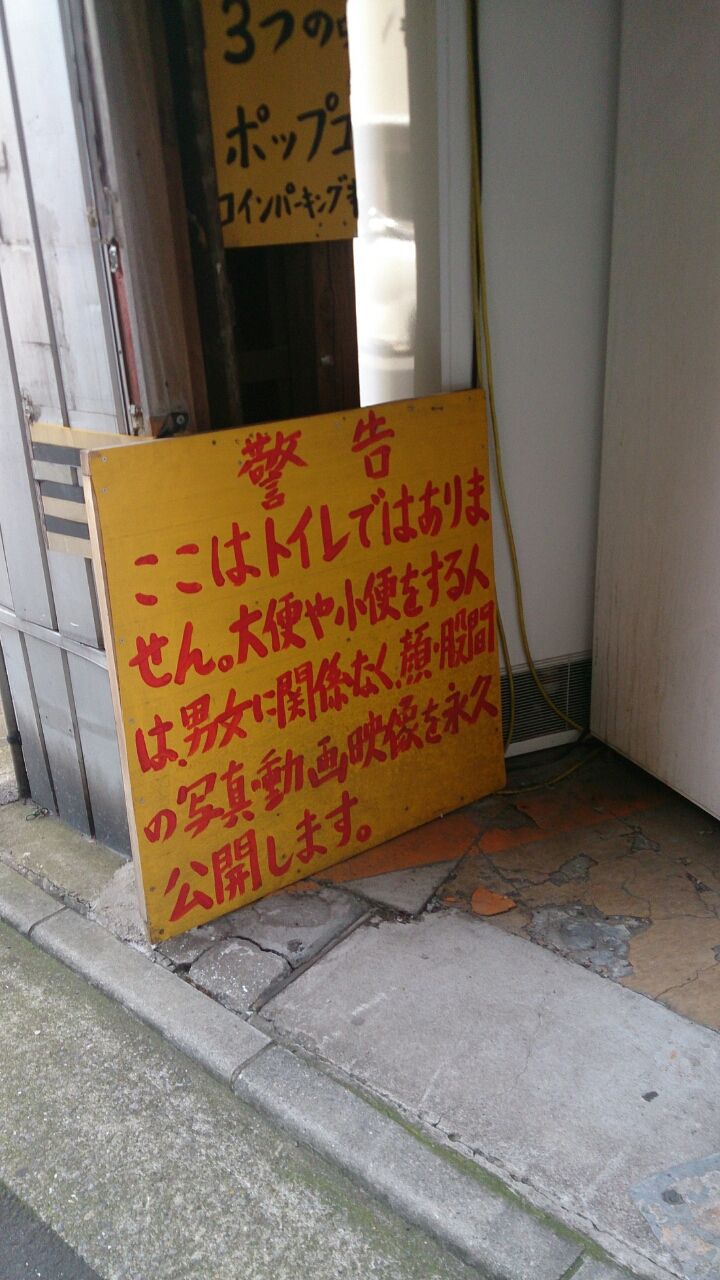 3つの
ポップコ
コインパーキング
警告
ここはトイレではありま
せん。大便や小便をする人
は、男女に関係なく、顔・股間
の写真・動画映像を永久
公開します。